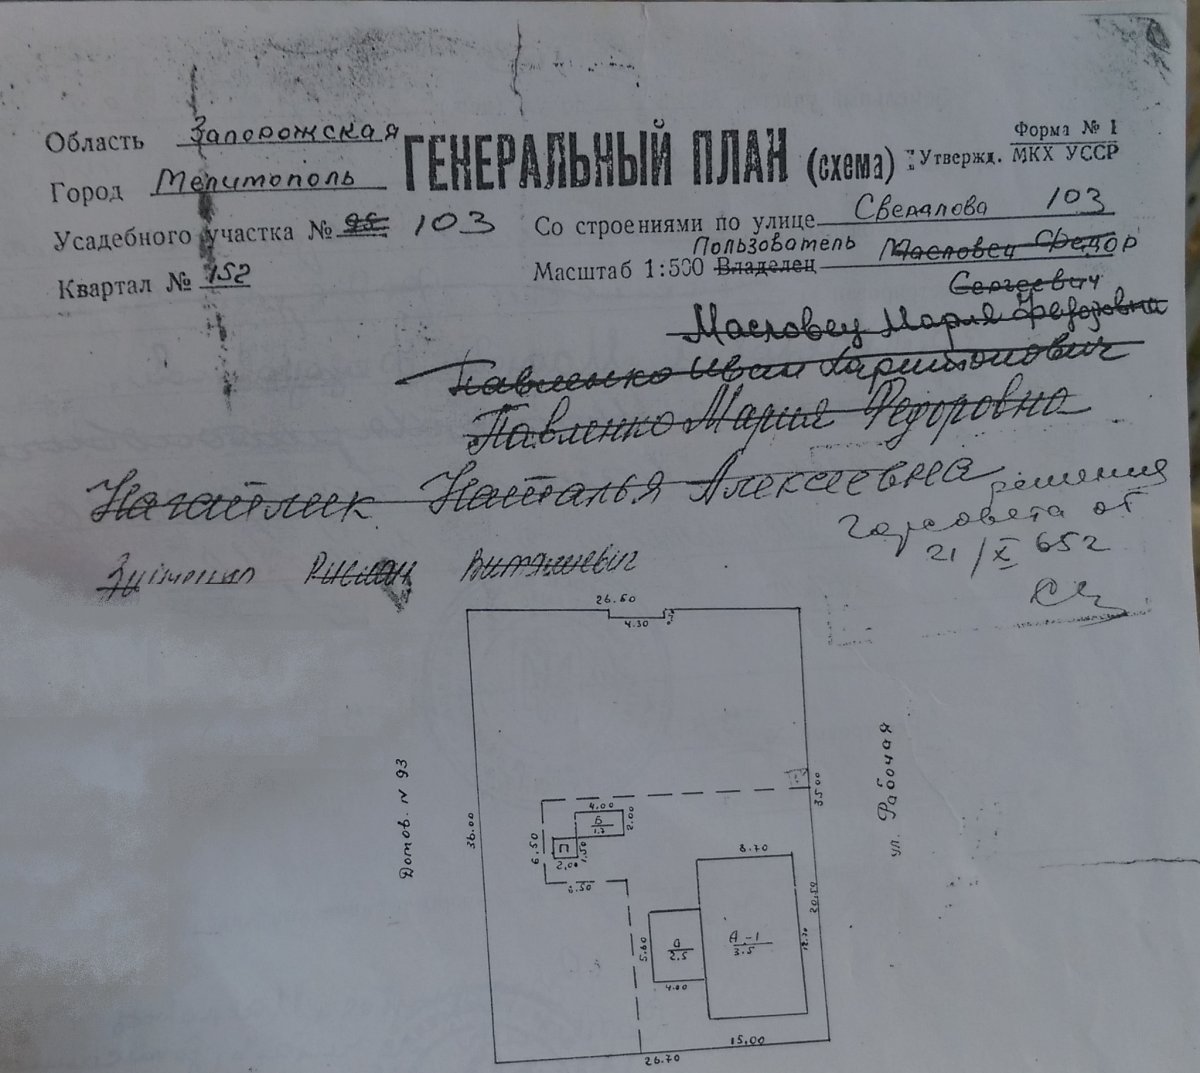 Форма № 1
Область Запорожская ГЕНЕРАЛЬНЫЙ ПЛАН (схема) Утвержд. МКХ УССР
Город Мелитополь
Усадебного участка № 103 Со строениями по улице Свердлова 103
Пользователь Масловец Федор
Квартал № 152 Масштаб 1:500 Владелец
Сергеевич
Масловец Мария Федоровна
Павленко Иван Харитонович
Павленко Мария Федоровна
Наталья Алексеевна
решения
горсовета от
21/X 652
Руслан
26.60
4.30
Домов. N 93
36.00
ул. Рабочая
35.00
4.00
Б
1.7
2.00
6.50
П
1.50
2.00
6.50
8.70
20.50
А-1
3.5
12.70
5.80
а
2.5
4.00
15.00
26.70